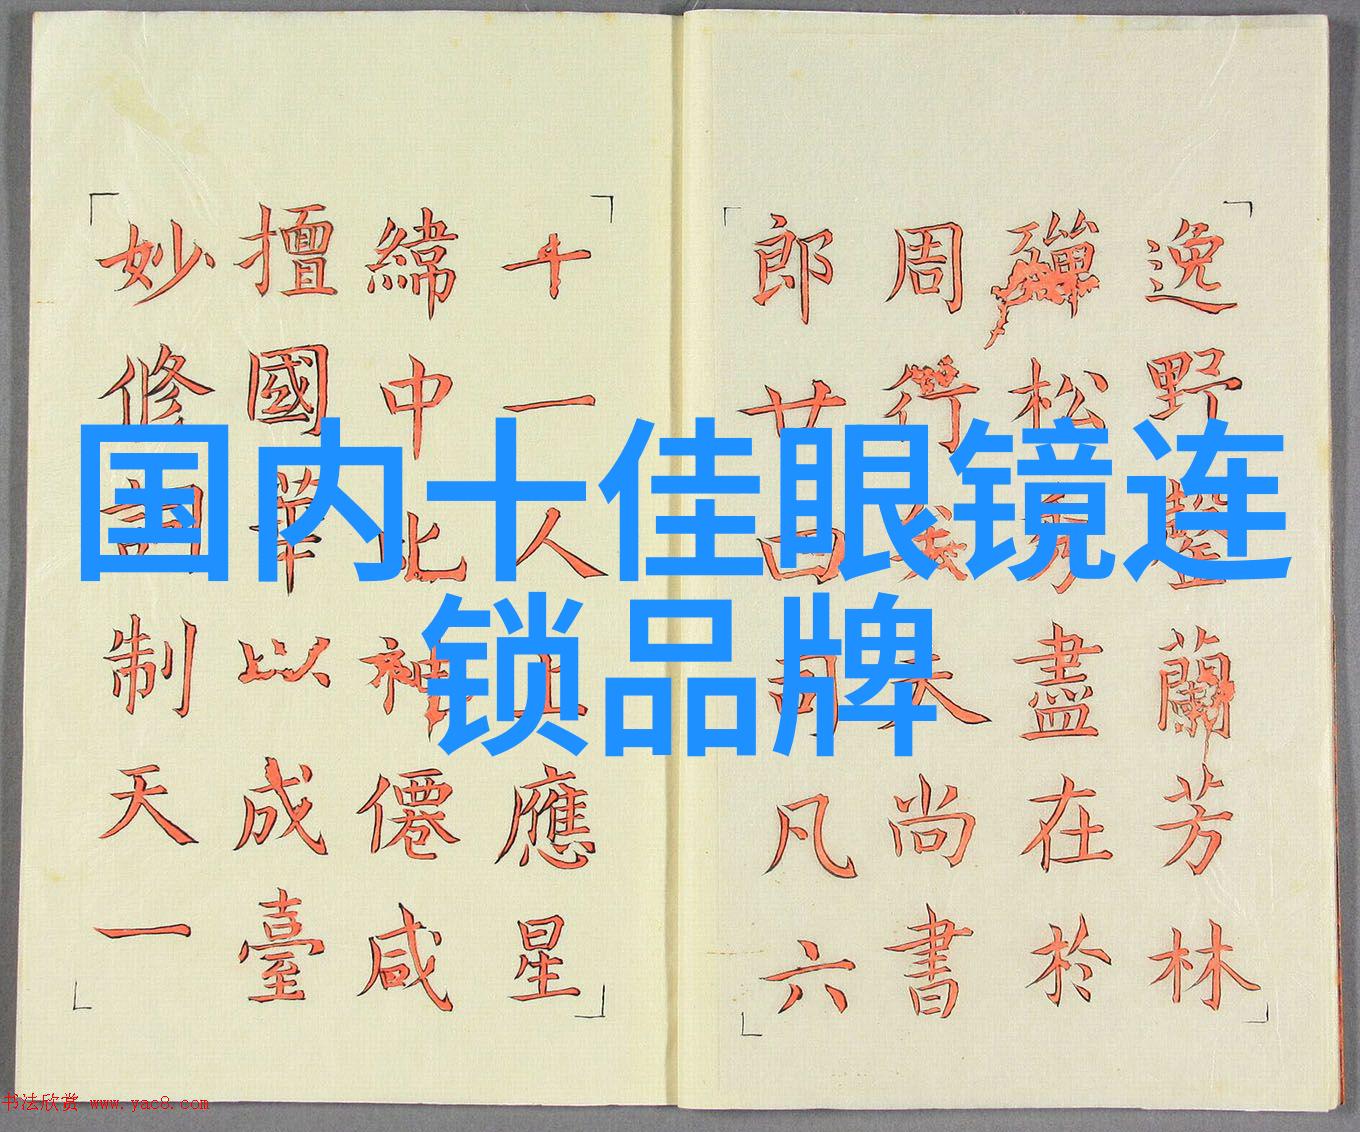 国内十佳眼镜连
锁品牌
逸野蘭芳林
殫松秀盡在於
周行矣夫尚書
郎廿四司凡六
十一人上應星
緯中比神僊咸
擅國華以成臺
妙修詞制天一
书法欣赏 www.yac8.com